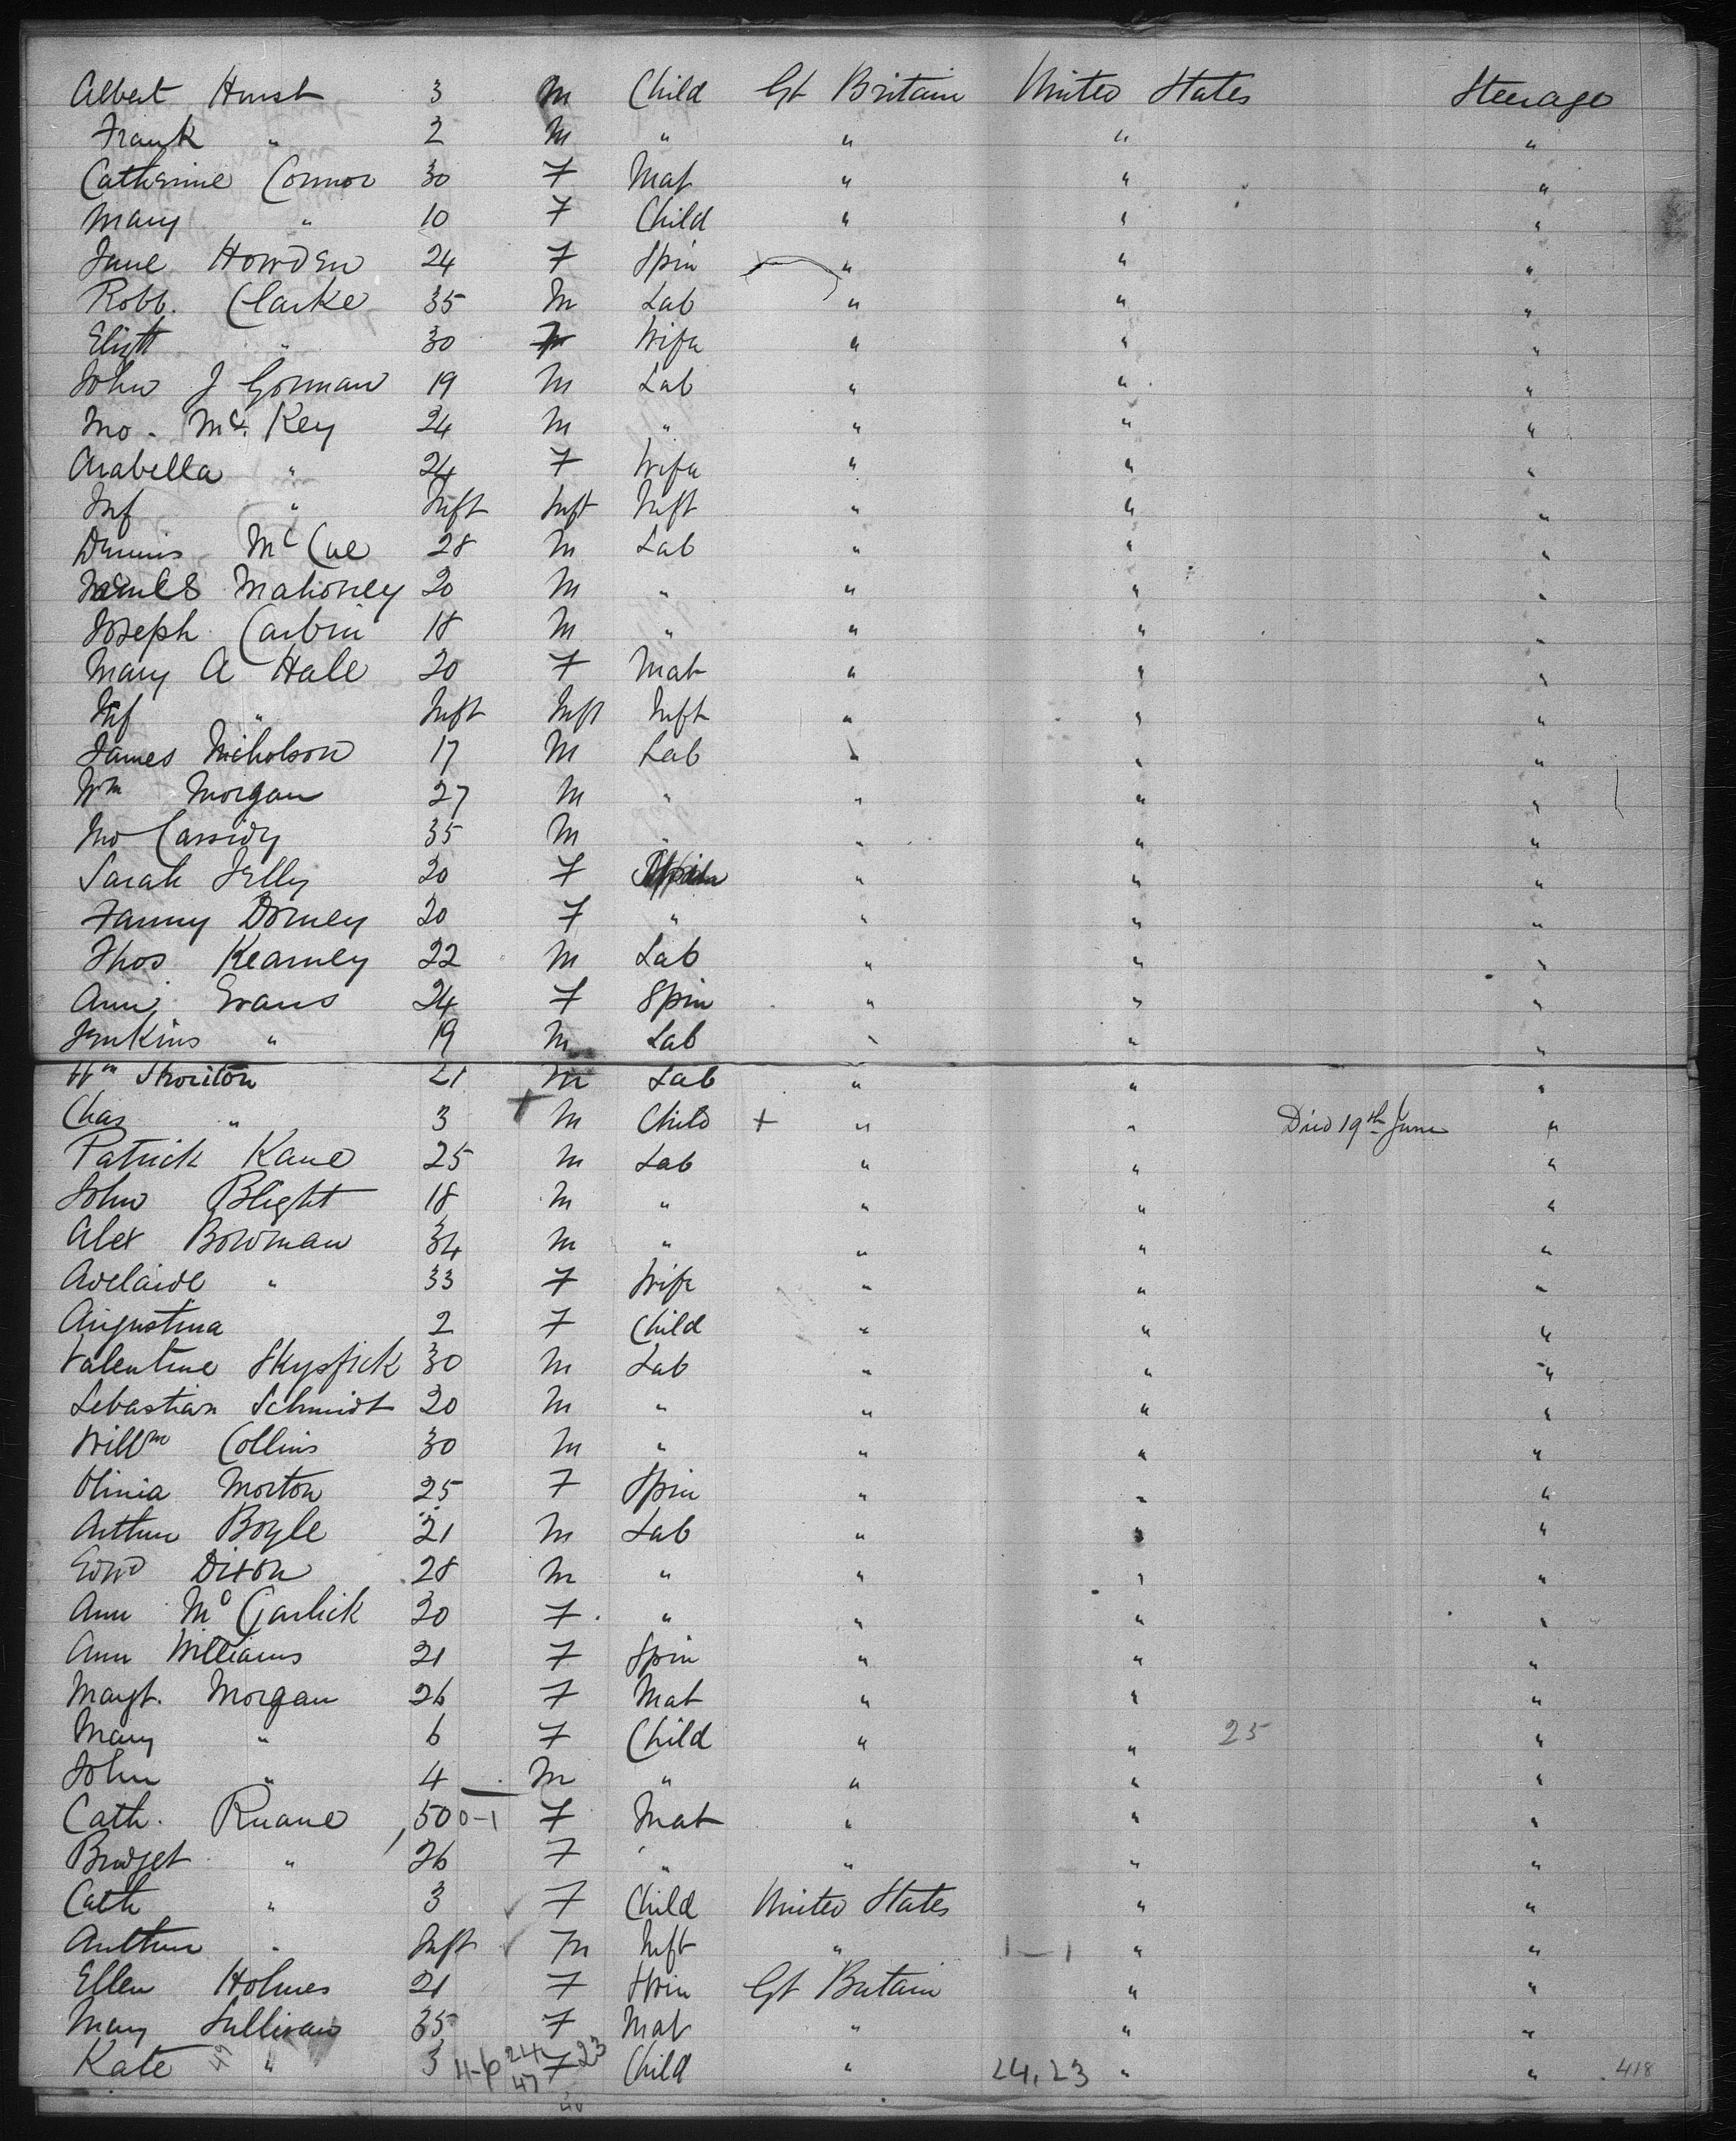 Albert Hurst 3 M Child Gt Britain United States Steerage
Frank " 2 M " " " "
Catherine Connor 30 F Mat " " "
Mary " 10 F Child " " "
Jane Howden 24 F Spin " " "
Robt. Clarke 35 M Lab " " "
Elizth " 30 F Wife " " "
John J Gorman 19 M Lab " " "
Jno. McKey 24 M " " " "
Arabella " 24 F Wife " " "
Inf " Inft Inft Inft " " "
Dennis McCue 28 M Lab " " "
James Mahoney 20 M " " " "
Joseph Carbin 18 M " " " "
Mary A Hale 20 F Mat " " "
Inf " Inft Inft Inft " " "
James Nicholson 17 M Lab " " "
Wm Morgan 27 M " " " "
Jno Cassidy 35 M " " " "
Sarah Jelly 20 F Spin " " "
Fanny Dorney 20 F " " " "
Thos Kearney 22 M Lab " " "
Ann Evans 24 F Spin " " "
Jenkins " 19 M Lab " " "
Wm 21 M Lab " " "
Chas " 3 + M Child + " " Died 19th June "
Patrick Kane 25 M Lab " " "
John Blight 18 M " " " "
Alex Bowman 34 M " " " "
Adelaide " 33 F Wife " " "
Augustina 2 F Child " " "
Valentine 30 M Lab " " "
Sebastian Schmidt 20 M " " " "
Willm Collins 30 M " " " "
Olinia Morton 25 F Spin " " "
Arthur Boyle 21 M Lab " " "
Edwd Dixon 28 M " " " "
Ann McGarlick 20 F " " " "
Ann Williams 21 F Spin " " "
Margt. Morgan 26 F Mat " " "
Mary " 6 F Child " " 25 "
John " 4 M " " " "
Cath. Ruane 50 0-1 F Mat " " "
Bridget " 26 F " " " "
Cath " 3 F Child United States " "
Arthur " Inft M Inft " 1-1 " "
Ellen Holmes 21 F Spin Gt Britain " "
Mary Sullivan 35 F Mat " " "
Kate 49 " 3 4-6 24 47 F 23 Child " 24.23 " " 418